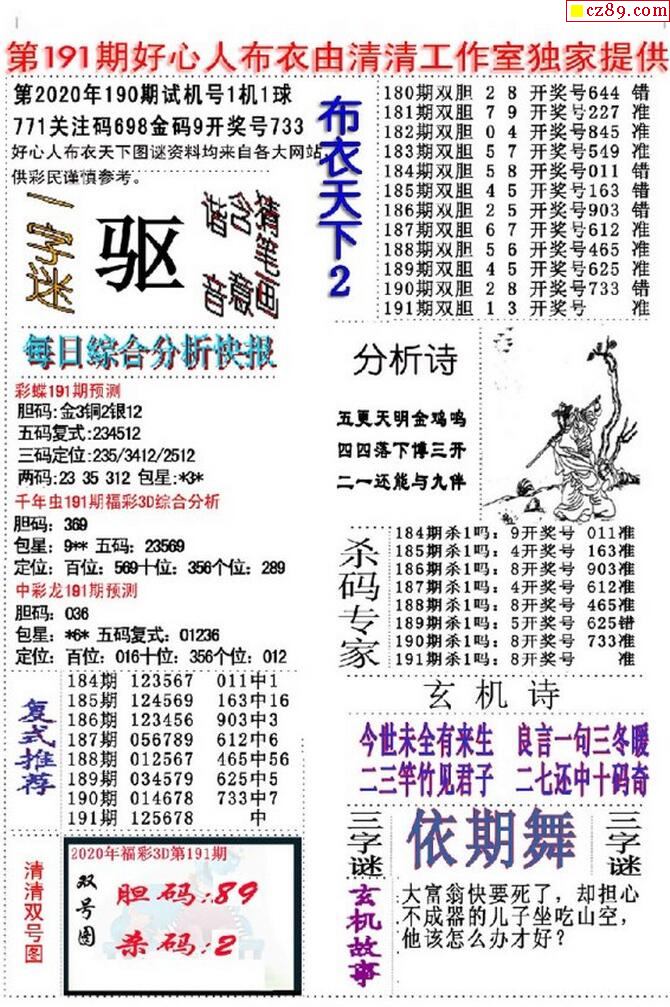 cz89.com
第191期好心人布衣由清清工作室独家提供
第2020年190期试机号1机1球
771关注码698金码9开奖号733
好心人布衣天下图谜资料均来自各大网站,
供彩民谨慎参考。
一字迷
驱
谐音
含意
猜笔画
每日综合分析快报
彩蝶191期预测
胆码:金3铜2银12
五码复式:234512
三码定位:235/3412/2512
两码:23 35 312 包星:*3*
千年虫191期福彩3D综合分析
胆码: 369
包星: 9** 五码: 23569
定位: 百位: 569十位: 356个位: 289
中彩龙191期预测
胆码: 036
包星: *6* 五码复式: 01236
定位: 百位: 016十位: 356个位: 012
复式推荐
184期 123567 011中1
185期 124569 163中16
186期 123456 903中3
187期 056789 612中6
188期 012567 465中56
189期 034579 625中5
190期 014678 733中7
191期 125678 中
清清双号图
2020年福彩3D第191期
双号图
胆码:89
杀码:2
布衣天下2
180期双胆 2 8 开奖号644 错
181期双胆 7 9 开奖号227 准
182期双胆 0 4 开奖号845 准
183期双胆 5 7 开奖号549 准
184期双胆 5 8 开奖号011 错
185期双胆 4 5 开奖号163 错
186期双胆 2 5 开奖号903 错
187期双胆 6 7 开奖号612 准
188期双胆 5 6 开奖号465 准
189期双胆 4 5 开奖号625 准
190期双胆 2 8 开奖号733 错
191期双胆 1 3 开奖号 准
分析诗
五更天明金鸡鸣
四四落下博三开
二一还能与九伴
杀码专家
184期杀1吗: 9开奖号 011准
185期杀1吗: 4开奖号 163准
186期杀1吗: 8开奖号 903准
187期杀1吗: 4开奖号 612准
188期杀1吗: 8开奖号 465准
189期杀1吗: 5开奖号 625错
190期杀1吗: 8开奖号 733准
191期杀1吗: 8开奖号 准
玄机诗
今世未全有来生 良言一句三冬暖
二三竿竹见君子 二七还中十码奇
三字谜
依期舞
三字谜
玄机故事
大富翁快要死了,却担心
不成器的儿子坐吃山空,
他该怎么办才好?